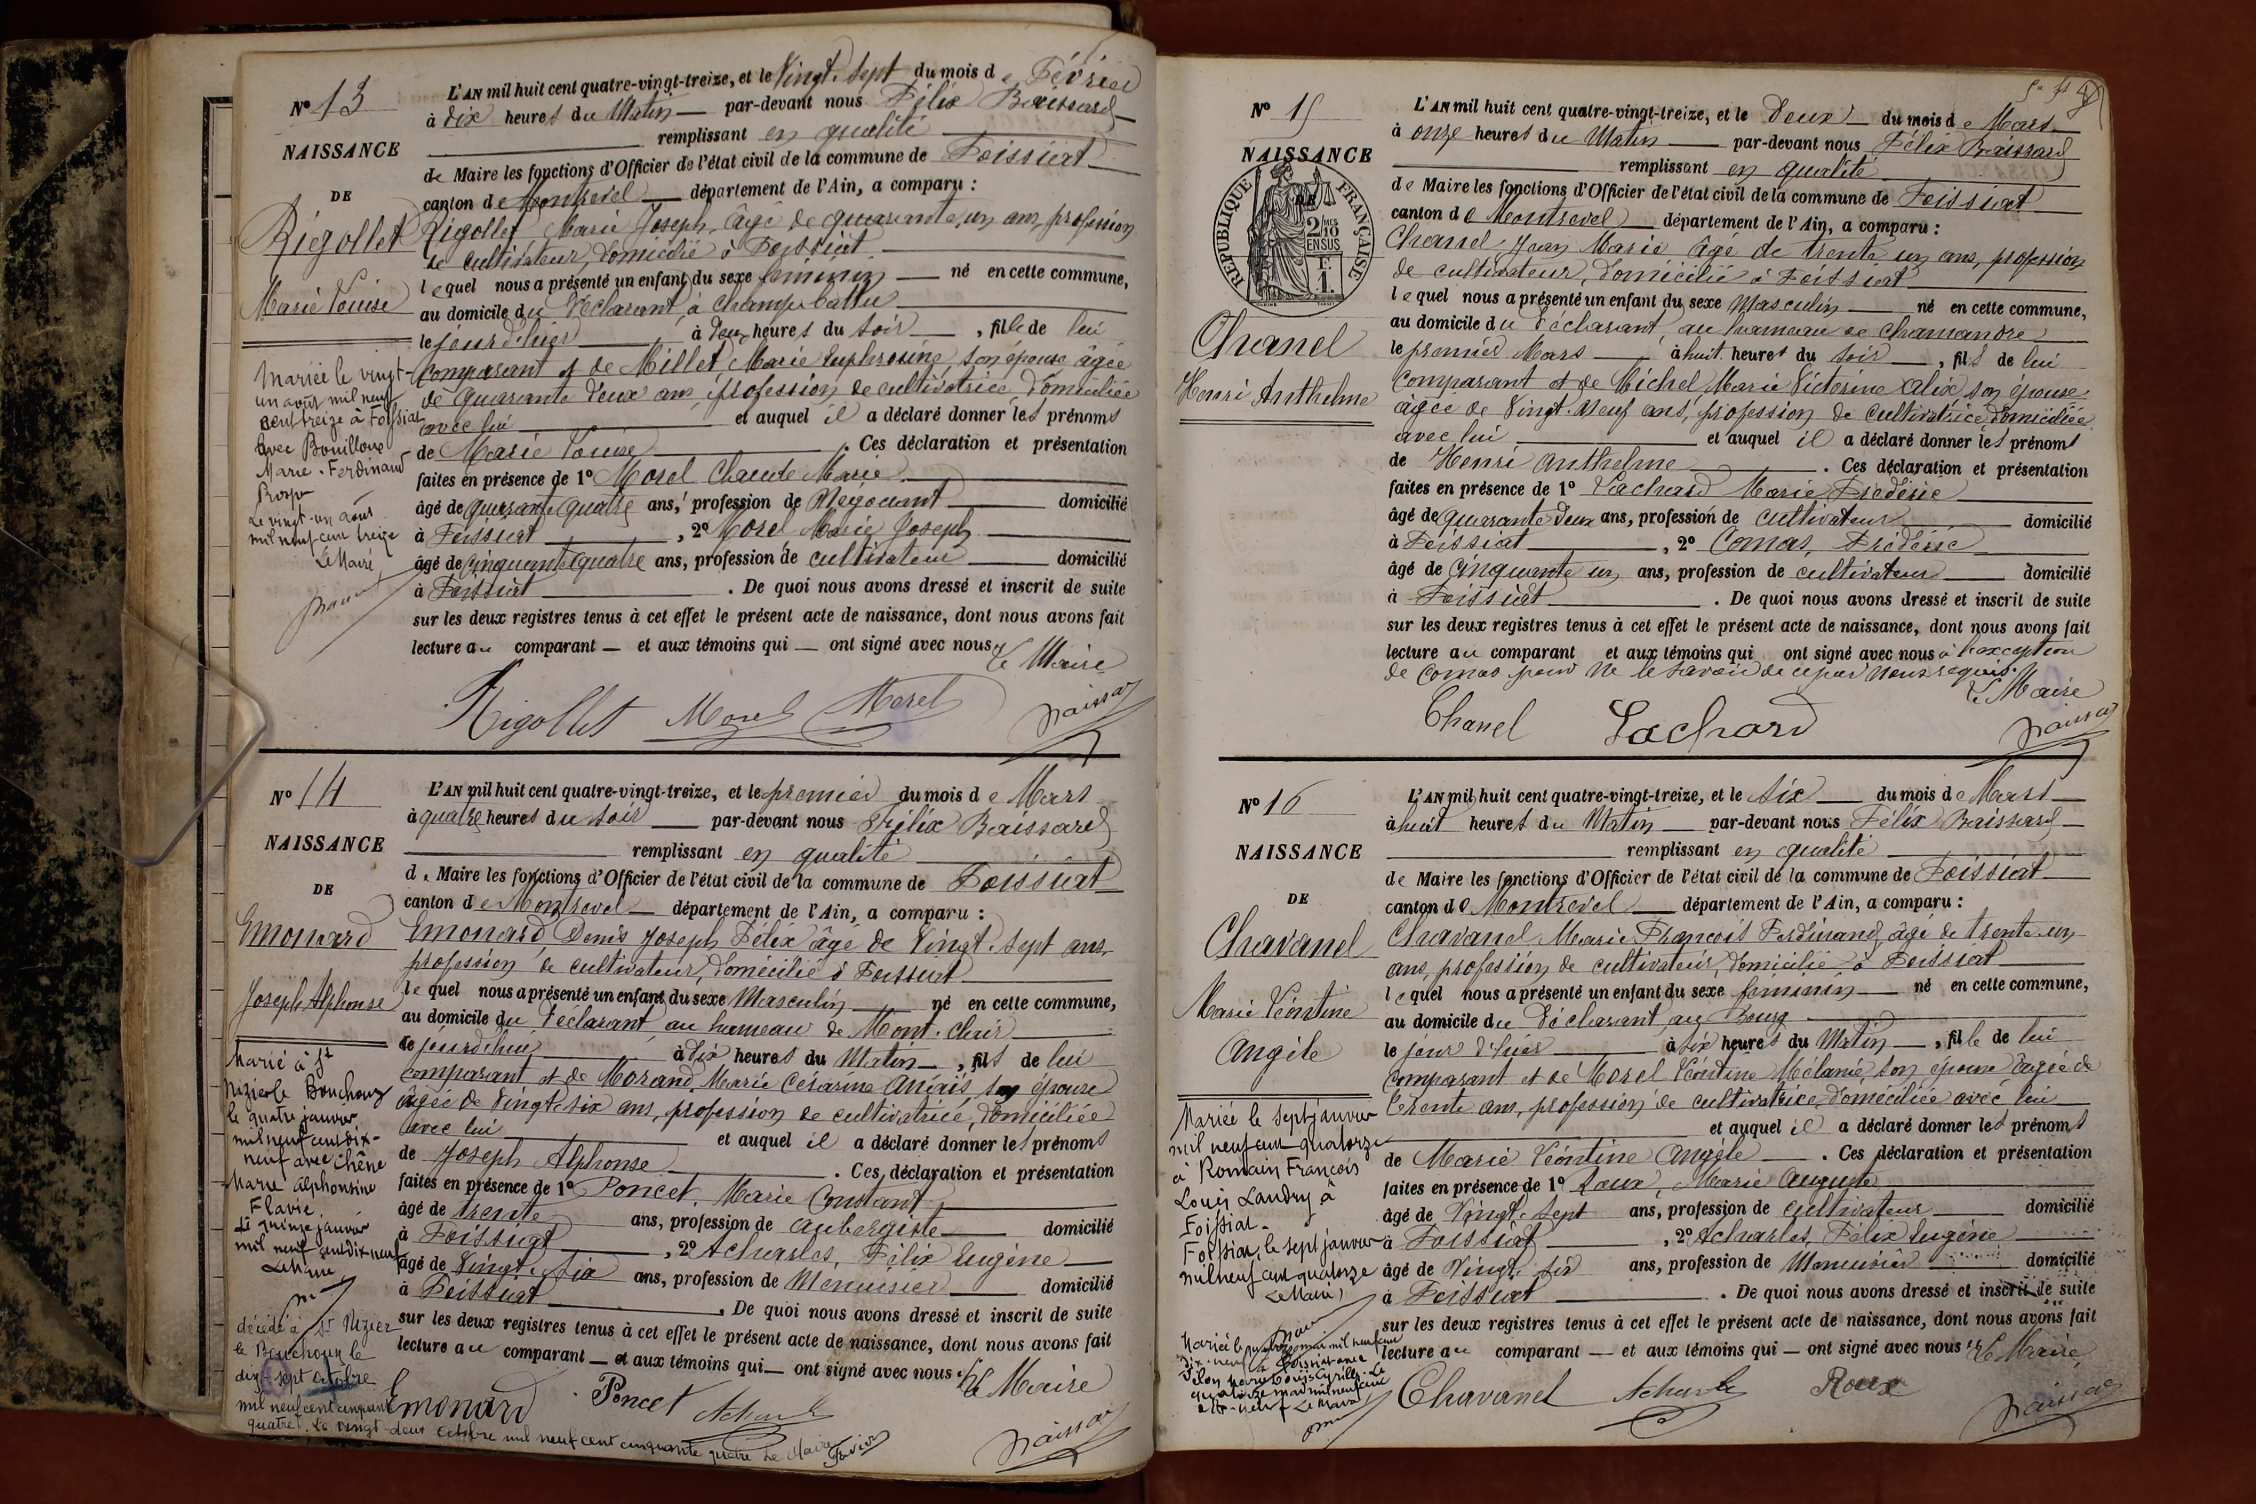 N° 13
NAISSANCE
DE
Rigollet
Marie Louise
Mariée le vingt-
un août mil neuf
cent treize à Foissiat
avec Bouilloux
Marie-Ferdinand
Le vingt-un août
mil neuf cent treize
Le Maire
L'AN mil huit cent quatre-vingt-treize, et le Vingt-sept du mois de Février
à dix heures du Matin par-devant nous Félix Baissard
remplissant en qualité
de Maire les fonctions d'Officier de l'état civil de la commune de Foissiat
canton de Montrevel département de l'Ain, a comparu :
Rigollet Marie Joseph, âgé de quarante un ans, profession
de cultivateur, domicilié à Foissiat
lequel nous a présenté un enfant du sexe féminin né en cette commune,
au domicile du Déclarant, à Champ-battu
le jour d'hier à deux heures du soir, fille de lui
comparant et de Millet, Marie Euphrosine, son épouse âgée
de quarante deux ans, profession de cultivatrice, domiciliée
avec lui et auquel il a déclaré donner les prénoms
de Marie Louise. Ces déclaration et présentation
faites en présence de 1° Morel Claude Marie
âgé de quarante quatre ans, profession de Négociant domicilié
à Foissiat, 2° Morel Marie Joseph
âgé de cinquante quatre ans, profession de cultivateur domicilié
à Foissiat. De quoi nous avons dressé et inscrit de suite
sur les deux registres tenus à cet effet le présent acte de naissance, dont nous avons fait
lecture au comparant — et aux témoins qui — ont signé avec nous. Le Maire
Rigollet Morel Morel Baissard
N° 14
NAISSANCE
DE
Emonard
Joseph Alphonse
Marié à St
Nizier le Bouchoux
le quatre janvier
mil neuf cent dix-
neuf avec Chêne
Marie Alphonsine
Flavie.
Le quinze janvier
mil neuf cent dix neuf
Le Maire
décédé à St Nizier
le Bouchoux le
dix-sept octobre
mil neuf cent cinquante
quatre. Le vingt-deux octobre mil neuf cent cinquante quatre Le Maire
L'AN mil huit cent quatre-vingt-treize, et le premier du mois de Mars
à quatre heures du soir par-devant nous Félix Baissard
remplissant en qualité
de Maire les fonctions d'Officier de l'état civil de la commune de Foissiat
canton de Montrevel département de l'Ain, a comparu :
Emonard, Denis Joseph Félix âgé de Vingt-sept ans,
profession de cultivateur, domicilié à Foissiat
lequel nous a présenté un enfant du sexe Masculin né en cette commune,
au domicile du Déclarant, au hameau de Mont-clair
le jourd'hui à dix heures du Matin, fils de lui
comparant et de Morand, Marie Césarine Anaïs, son épouse
âgée de Vingt-six ans, profession de cultivatrice, domiciliée
avec lui et auquel il a déclaré donner les prénoms
de Joseph Alphonse. Ces déclaration et présentation
faites en présence de 1° Poncet, Marie Constant,
âgé de trente ans, profession de aubergiste domicilié
à Foissiat, 2° Acharles, Félix Eugène
âgé de Vingt-six ans, profession de Menuisier domicilié
à Foissiat. De quoi nous avons dressé et inscrit de suite
sur les deux registres tenus à cet effet le présent acte de naissance, dont nous avons fait
lecture au comparant — et aux témoins qui — ont signé avec nous. Le Maire
Emonard Poncet Acharles Baissard
N° 15
NAISSANCE
DE
RÉPUBLIQUE FRANÇAISE
2/10 EN SUS
1
Chanel
Henri Anthelme
L'AN mil huit cent quatre-vingt-treize, et le Deux du mois de Mars
à onze heures du Matin par-devant nous Félix Baissard
remplissant en qualité
de Maire les fonctions d'Officier de l'état civil de la commune de Foissiat
canton de Montrevel département de l'Ain, a comparu :
Chanel, Jean Marie âgé de trente un ans, profession
de cultivateur, domicilié à Foissiat
lequel nous a présenté un enfant du sexe Masculin né en cette commune,
au domicile du Déclarant, au hameau de Chamandre
le premier Mars à huit heures du soir, fils de lui
comparant et de Michel, Marie Victorine Alix son épouse,
âgée de Vingt-Neuf ans, profession de cultivatrice, domiciliée
avec lui et auquel il a déclaré donner les prénoms
de Henri Anthelme. Ces déclaration et présentation
faites en présence de 1° Vachard Marie Frédéric
âgé de quarante deux ans, profession de cultivateur domicilié
à Foissiat, 2° Comas, Frédéric
âgé de cinquante un ans, profession de cultivateur domicilié
à Foissiat. De quoi nous avons dressé et inscrit de suite
sur les deux registres tenus à cet effet le présent acte de naissance, dont nous avons fait
lecture au comparant et aux témoins qui ont signé avec nous à l'exception
de Comas pour ne le savoir de ce par nous requis.
Le Maire
Chanel Vachard Baissard
N° 16
NAISSANCE
DE
Chavanel
Marie Léontine
Angèle
Mariée le sept janvier
mil neuf cent quatorze
à Romain François
Louis Landry à
Foissiat.
Foissiat, le sept janvier
mil neuf cent quatorze
Le Maire,
L'AN mil huit cent quatre-vingt-treize, et le six du mois de Mars
à huit heures du Matin par-devant nous Félix Baissard
remplissant en qualité
de Maire les fonctions d'Officier de l'état civil de la commune de Foissiat
canton de Montrevel département de l'Ain, a comparu :
Chavanel Marie François Ferdinand, âgé de trente un
ans, profession de cultivateur, domicilié à Foissiat
lequel nous a présenté un enfant du sexe féminin né en cette commune,
au domicile du Déclarant, au Bourg
le jour d'hier à six heures du Matin, fille de lui
comparant et de Morel Léontine Mélanie, son épouse âgée de
trente ans, profession de cultivatrice, domiciliée avec lui
et auquel il a déclaré donner les prénoms
de Marie Léontine Angèle. Ces déclaration et présentation
faites en présence de 1° Roux, Marie Auguste
âgé de Vingt-sept ans, profession de cultivateur domicilié
à Foissiat, 2° Acharles, Félix Eugène
âgé de Vingt-six ans, profession de Menuisier domicilié
à Foissiat. De quoi nous avons dressé et inscrit de suite
sur les deux registres tenus à cet effet le présent acte de naissance, dont nous avons fait
lecture au comparant — et aux témoins qui — ont signé avec nous. Le Maire,
Chavanel Acharles Roux Baissard